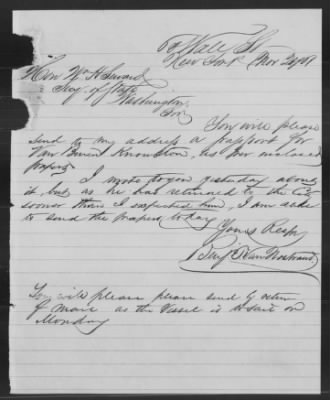 Wall St
New York Nov
Hon Wm H Seward
Secy. of State
Washington
Sir
You will please
send to my address a passport for
Knowlton, as per enclosed
papers
I wrote to you yesterday about
it but as he has returned to the City
sooner than I expected him, I am able
to send the papers today
Yours Resp
Benj
You will please please send by return
of mail as the Vessel is to sail on
Monday